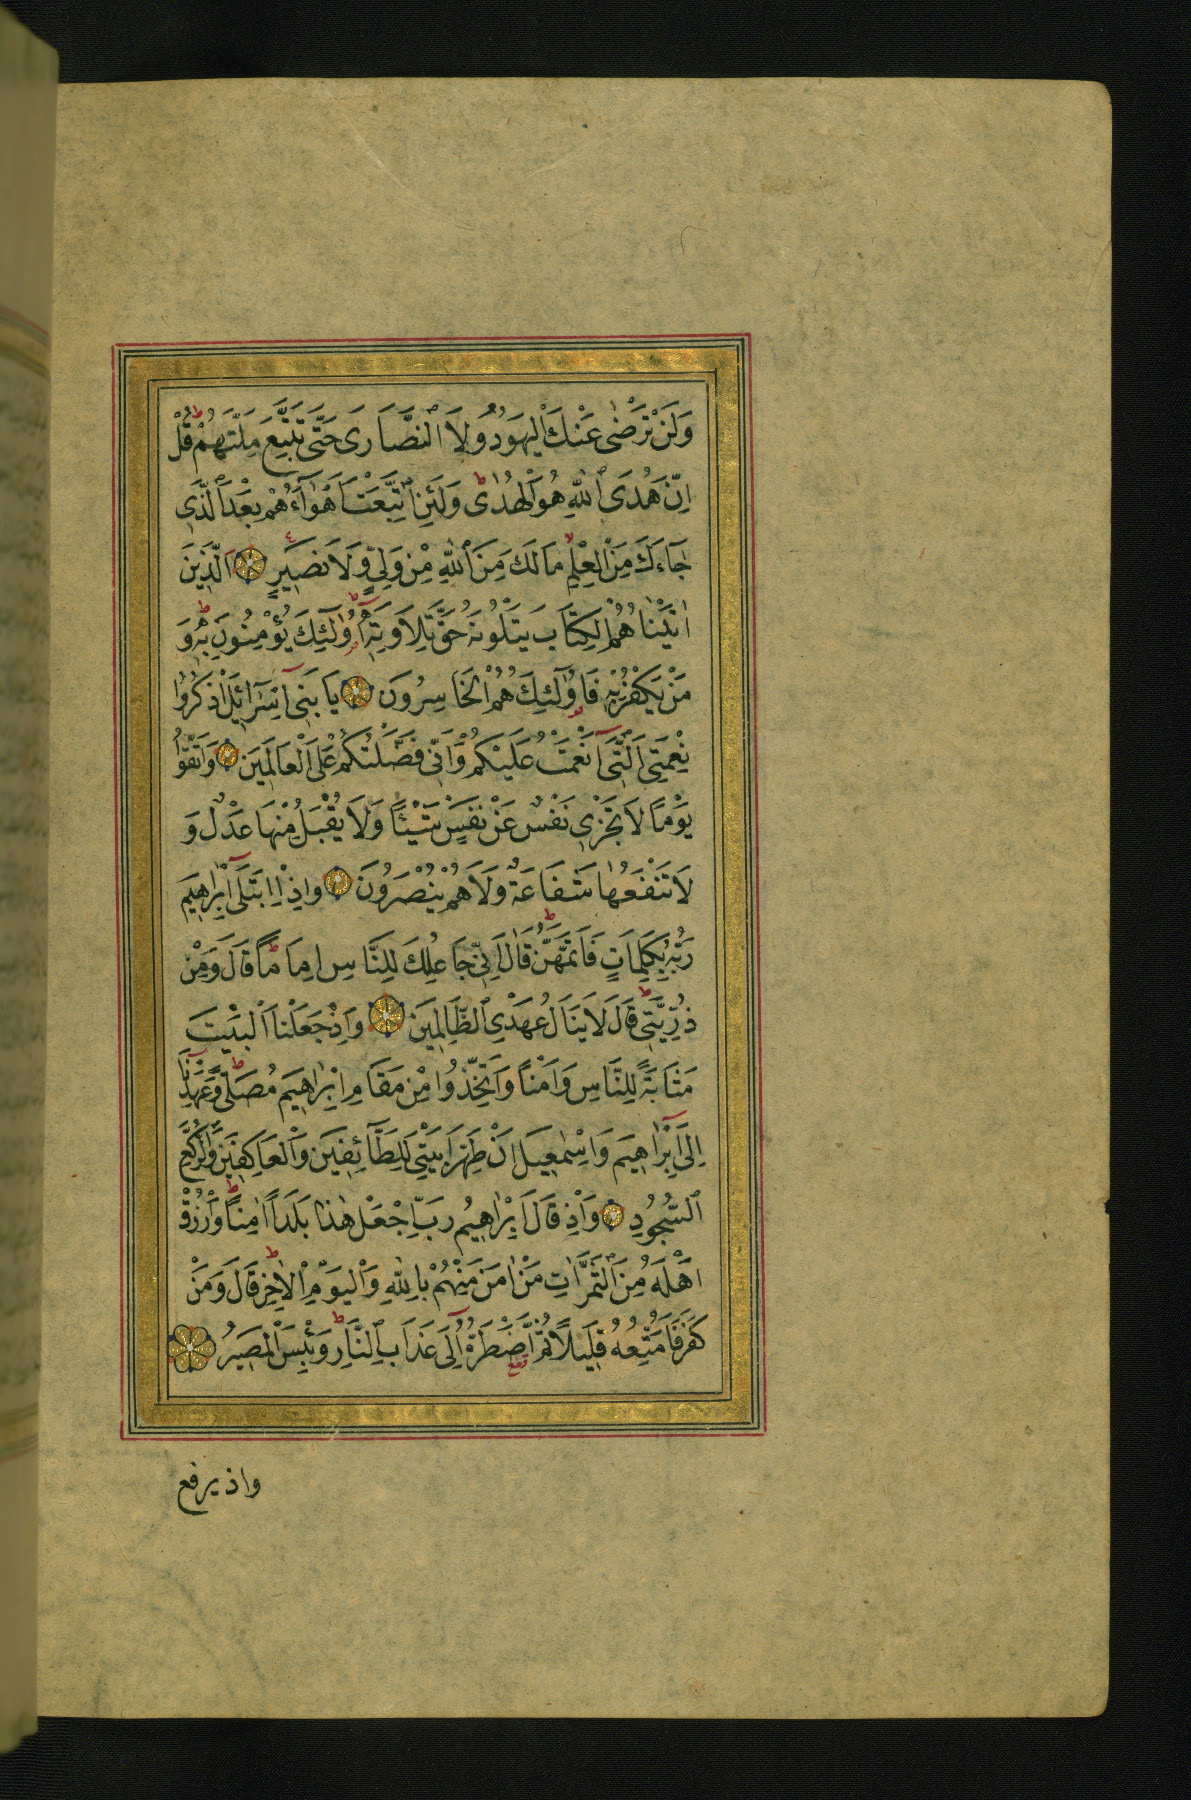 وَلَنْ تَرْضٰى عَنْكَ الْيَهُودُ وَلَا النَّصَارَى حَتّٰى تَتَّبِعَ مِلَّتَهُمْ ط قُلْ
اِنَّ هُدَى اللّٰهِ هُوَ الْهُدٰى ط وَلَئِنِ اتَّبَعْتَ اَهْوَاۤءَهُمْ بَعْدَ الَّذٖى
جَاءَكَ مِنَ الْعِلْمِ لا مَا لَكَ مِنَ اللّٰهِ مِنْ وَلِيٍّ وَلَا نَصٖيرٍ اَلَّذٖينَ
اٰتَيْنَاهُمُ الْكِتَابَ يَتْلُونَهُ حَقَّ تِلَاوَتِهٖ ط اُولٰۤئِكَ يُؤْمِنُونَ بِهٖ ط وَ
مَنْ يَكْفُرْ بِهٖ فَاُولٰۤئِكَ هُمُ الْخَاسِرُونَ يَا بَنٖٓى اِسْرَاۤئٖلَ اذْكُرُوا
نِعْمَتِىَ الَّتٖٓى اَنْعَمْتُ عَلَيْكُمْ وَاَنّٖى فَضَّلْتُكُمْ عَلَى الْعَالَمٖينَ وَاتَّقُوا
يَوْمًا لَا تَجْزٖى نَفْسٌ عَنْ نَفْسٍ شَيْئًا وَلَا يُقْبَلُ مِنْهَا عَدْلٌ وَ
لَا تَنْفَعُهَا شَفَاعَةٌ وَلَا هُمْ يُنْصَرُونَ وَاِذِ ابْتَلٰٓى اِبْرٰهٖيمَ
رَبُّهُ بِكَلِمَاتٍ فَاَتَمَّهُنَّ ط قَالَ اِنّٖى جَاعِلُكَ لِلنَّاسِ اِمَامًا ط قَالَ وَمِنْ
ذُرِّيَّتٖى ط قَالَ لَا يَنَالُ عَهْدِى الظَّالِمٖينَ وَاِذْ جَعَلْنَا الْبَيْتَ
مَثَابَةً لِلنَّاسِ وَاَمْنًا وَاتَّخِذُوا مِنْ مَقَامِ اِبْرٰهٖيمَ مُصَلًّى ط وَعَهِدْنَا
اِلٰٓى اِبْرَاهٖيمَ وَاِسْمٰعٖيلَ اَنْ طَهِّرَا بَيْتِىَ لِلطَّاۤئِفٖينَ وَالْعَاكِفٖينَ وَالرُّكَّعِ
السُّجُودِ وَاِذْ قَالَ اِبْرٰهٖيمُ رَبِّ اجْعَلْ هٰذَا بَلَدًا اٰمِنًا ط وَارْزُقْ
اَهْلَهُ مِنَ الثَّمَرَاتِ مَنْ اٰمَنَ مِنْهُمْ بِاللّٰهِ وَالْيَوْمِ الْاٰخِرِ ط قَالَ وَمَنْ
كَفَرَ فَاُمَتِّعُهُ قَلٖيلًا ثُمَّ اَضْطَرُّهُٓ اِلٰى عَذَابِ النَّارِ ط وَبِئْسَ الْمَصٖيرُ
واذ يرفع